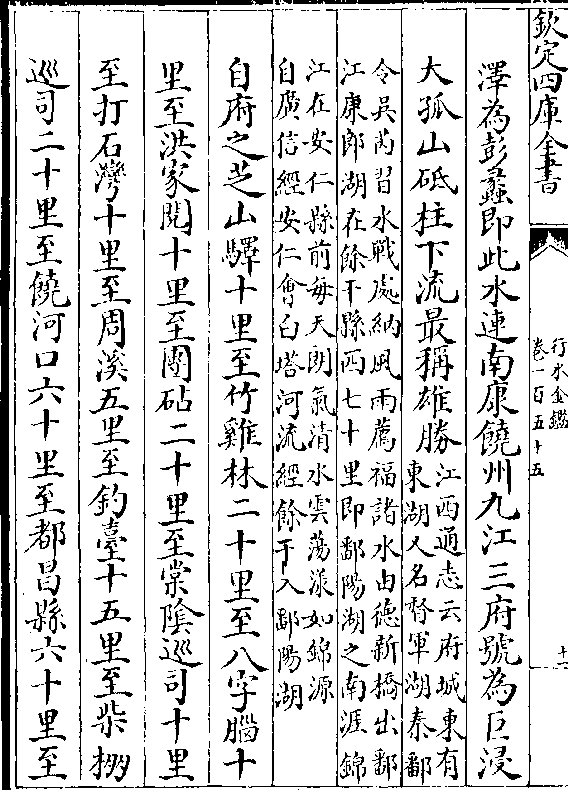 欽定四庫全書
行水金鑑
卷一百五十五
十二
澤為彭蠡即此水連南康饒州九江三府號為巨浸
大孤山砥柱下流最稱雄勝
江西通志云府城東有
東湖又名督軍湖秦鄱
令吳芮習水戰處納風雨薦福諸水由德新橋出鄱
江康郎湖在餘干縣西七十里即鄱陽湖之南涯錦
江在安仁縣前每天朗氣清水雲蕩漾如錦源
自廣信經安仁會白塔河流經餘干入鄱陽湖
自府之芝山驛十里至竹雞林二十里至八字腦十
里至洪家閱十里至團砧二十里至棠陰巡司十里
至打石灣十里至周溪五里至釣臺十五里至柴棚
巡司二十里至饒河口六十里至都昌縣六十里至